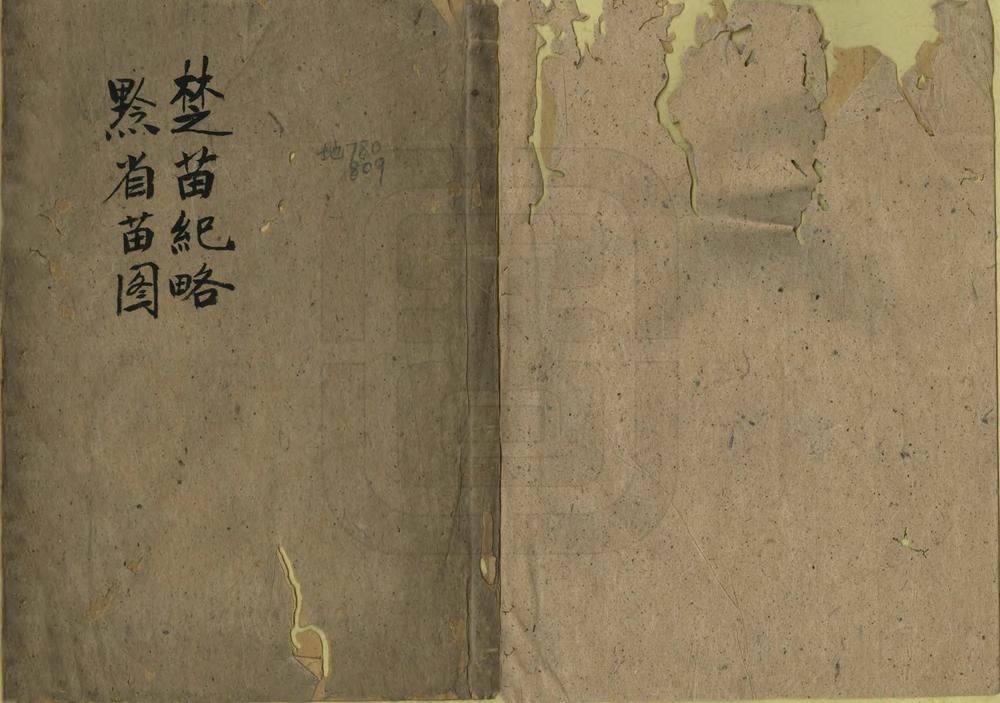 楚苗紀略
黔省苗图
地780
809